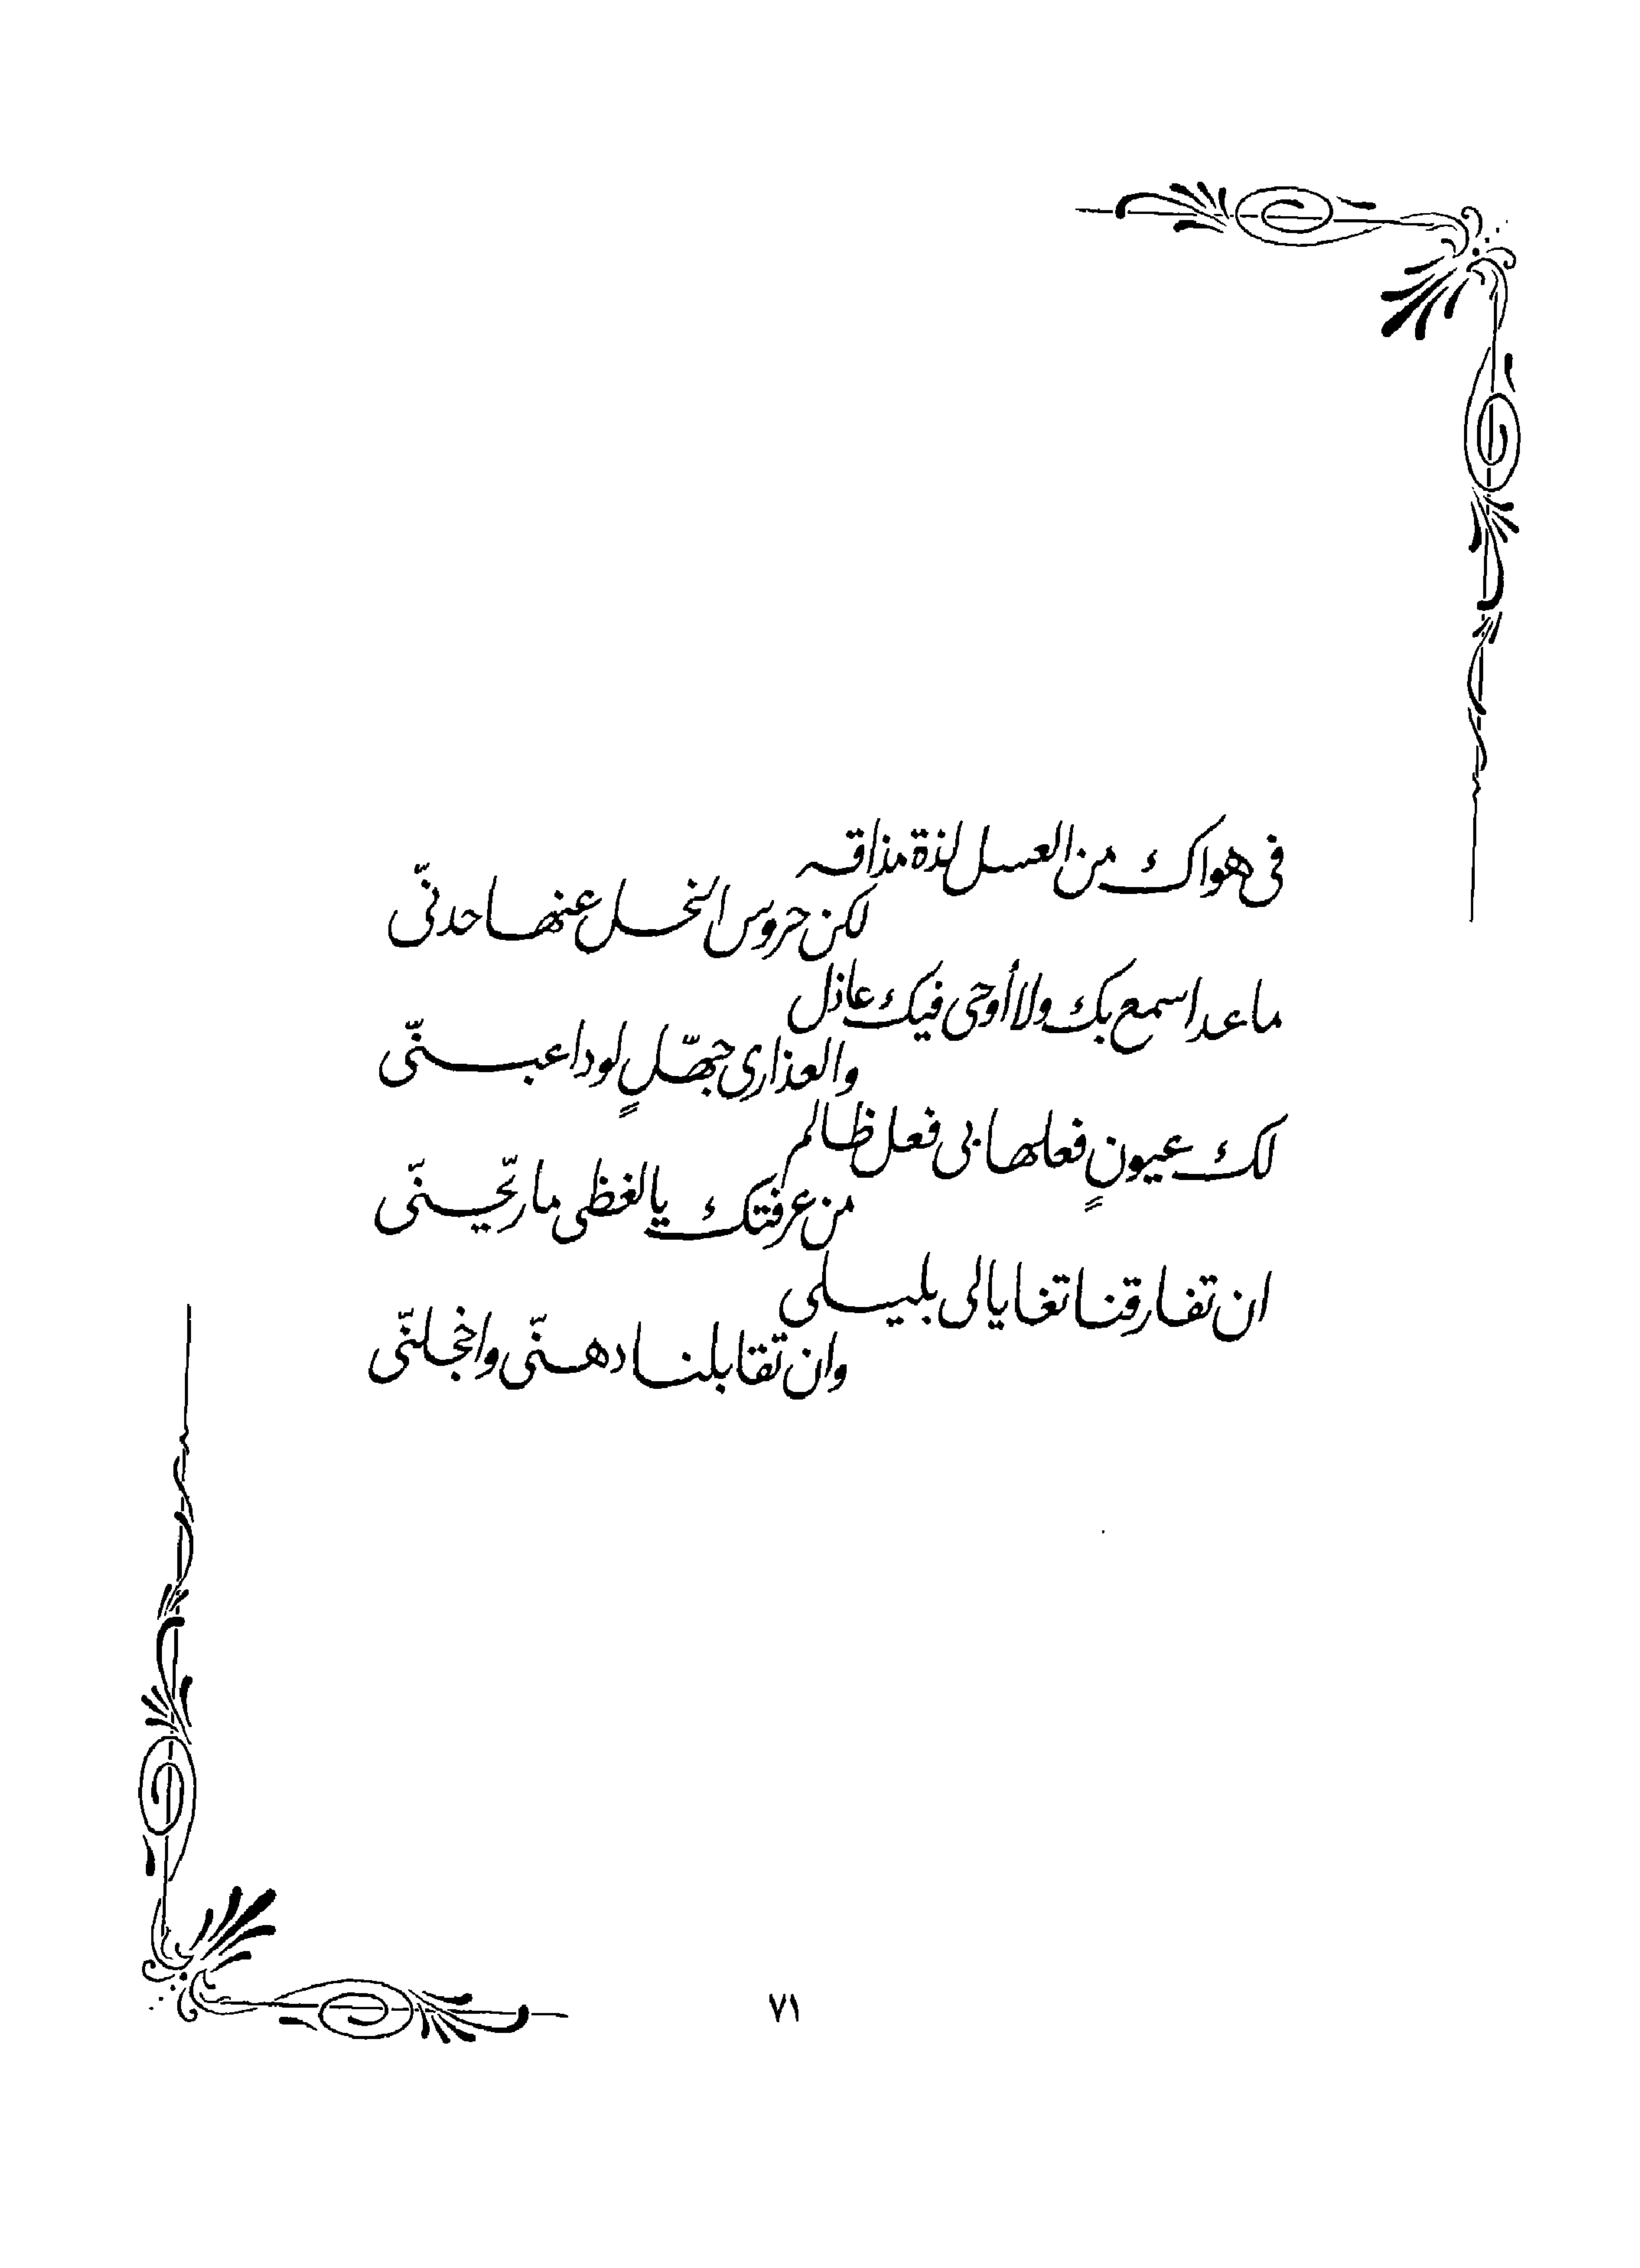 فى هواك من العسل لذة مذاقه
لكن حروس النخل عنها حدنّى
ما عد اسمع بك ولا أوحى فيك عاذل
والعذارى جهّلٍ لو داعبنّى
لك عيونٍ فعلها بى فعل ظالم
من عرفتك يالغظى ما ريّحينّى
ان تفارقنا تغايالى بليلى
وان تقابلنا دهنّى واخجلنّى
٧١